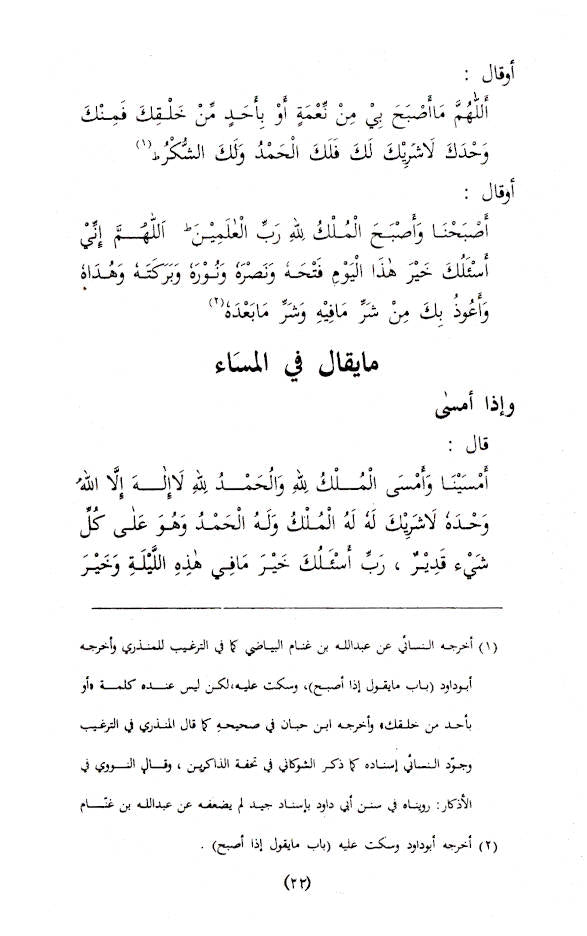 أوقال :
أَللّٰهُمَّ مَاأَصْبَحَ بِي مِنْ نِّعْمَةٍ أَوْ بِأَحَدٍ مِّنْ خَلْقِكَ فَمِنْكَ
وَحْدَكَ لَاشَرِيْكَ لَكَ فَلَكَ الْحَمْدُ وَلَكَ الشُّكْرُ ط(١)
أوقال :
أَصْبَحْنَا وَأَصْبَحَ الْمُلْكُ لِلّٰهِ رَبِّ الْعٰلَمِيْنَ ط اَللّٰهُمَّ إِنِّيْ
أَسْئَلُكَ خَيْرَ هٰذَا الْيَوْمِ فَتْحَهٗ وَنَصْرَهٗ وَنُوْرَهٗ وَبَرَكَتَهٗ وَهُدَاهُ
وَأَعُوذُ بِكَ مِنْ شَرِّ مَافِيْهِ وَشَرِّ مَابَعْدَهٗ(٢)
مايقال في المسَاء
وإذا أمسٰى
قال :
أَمْسَيْنَا وَأَمْسَى الْمُلْكُ لِلّٰهِ وَالْحَمْدُ لِلّٰهِ لَاإِلٰهَ إِلَّا اللّٰهُ
وَحْدَهٗ لَاشَرِيْكَ لَهٗ لَهُ الْمُلْكُ وَلَهُ الْحَمْدُ وَهُوَ عَلٰى كُلِّ
شَيْءٍ قَدِيْرٌ ، رَبِّ أَسْئَلُكَ خَيْرَ مَافِي هٰذِهِ اللَّيْلَةِ وَخَيْرَ
(١) أخرجه النسائي عن عبدالله بن غنام البياضي كما في الترغيب للمنذري وأخرجه
أبوداود (باب مايقول إذا أصبح)، وسكت عليه،لكن ليس عنده كلمة «أو
بأحد من خلقك» وأخرجه ابن حبان في صحيحهِ كما قال المنذري في الترغيب
وجوّد النسائي إسناده كما ذكر الشوكاني في تحفة الذاكرين ، وقالي النووي في
الأذكار: رويناه في سنن أبي داود بإسناد جيد لم يضعفه عن عبدالله بن غنّام
(٢) أخرجه أبوداود وسكت عليه (باب مايقول إذا أصبح) .
(٣٣)